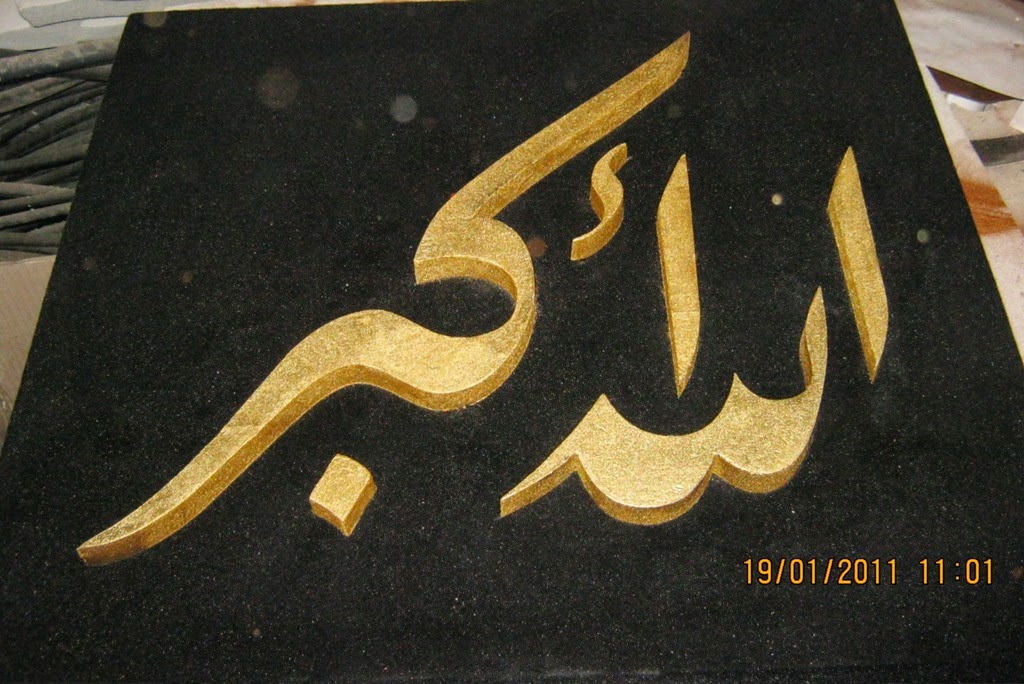 الله أكبر
19/01/2011 11:01